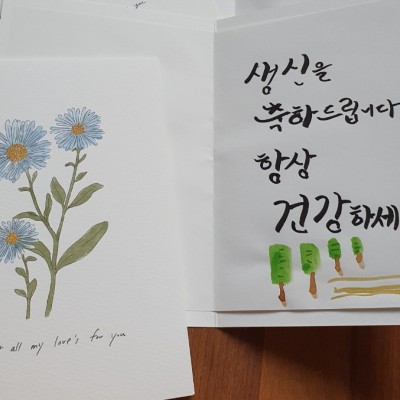 all my love's for you
생신을
축하드립니다
항상
건강하세
you